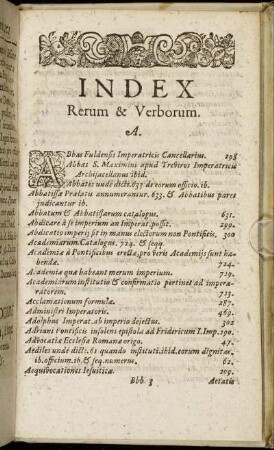 INDEX
Rerum & Verborum.
A.
ABbas Fuldensis Imperatricis Cancellarius. 298
Abbas S. Maximini apud Treviros Imperatricis
Archicapellanus ibid.
Abbates unde dicti. 633. de eorum officio. ib.
Abbatissæ Prælatis annumerantur. 633. & Abbatibus pares
judicantur ib.
Abbatum & Abbatissarum catalogus. 631.
Abdicare à se imperium an Imperat. possit. 299.
Abdicatio imperij fit in manus electorum non Pontificis, 300
Academiarum Catalogus. 724. & seqq.
Academiæ à Pontificibus erectæ pro veris Academijs sunt ha-
bendæ. 724.
Academiæ quæ habeant merum imperium. 719.
Academiarum institutio & confirmatio pertinet ad impera-
ratorem. 723.
Acclamationum formulæ. 287.
Adminiseri Imperatoris. 469.
Adolphus Imperat. ab imperio dejectus. 302.
Adriani Pontificis insolens epistola ad Fridericum I. Imp. 190.
Advocatia Ecclesiæ Romanæ origo. 47.
Aediles unde dicti. 61 quando instituti. ibid. eorum dignitas.
ib. officium. ib. & seq. numerus. 62.
Aequivocationes Iesuiticæ. 209.
Bbb. 3 Aetatis